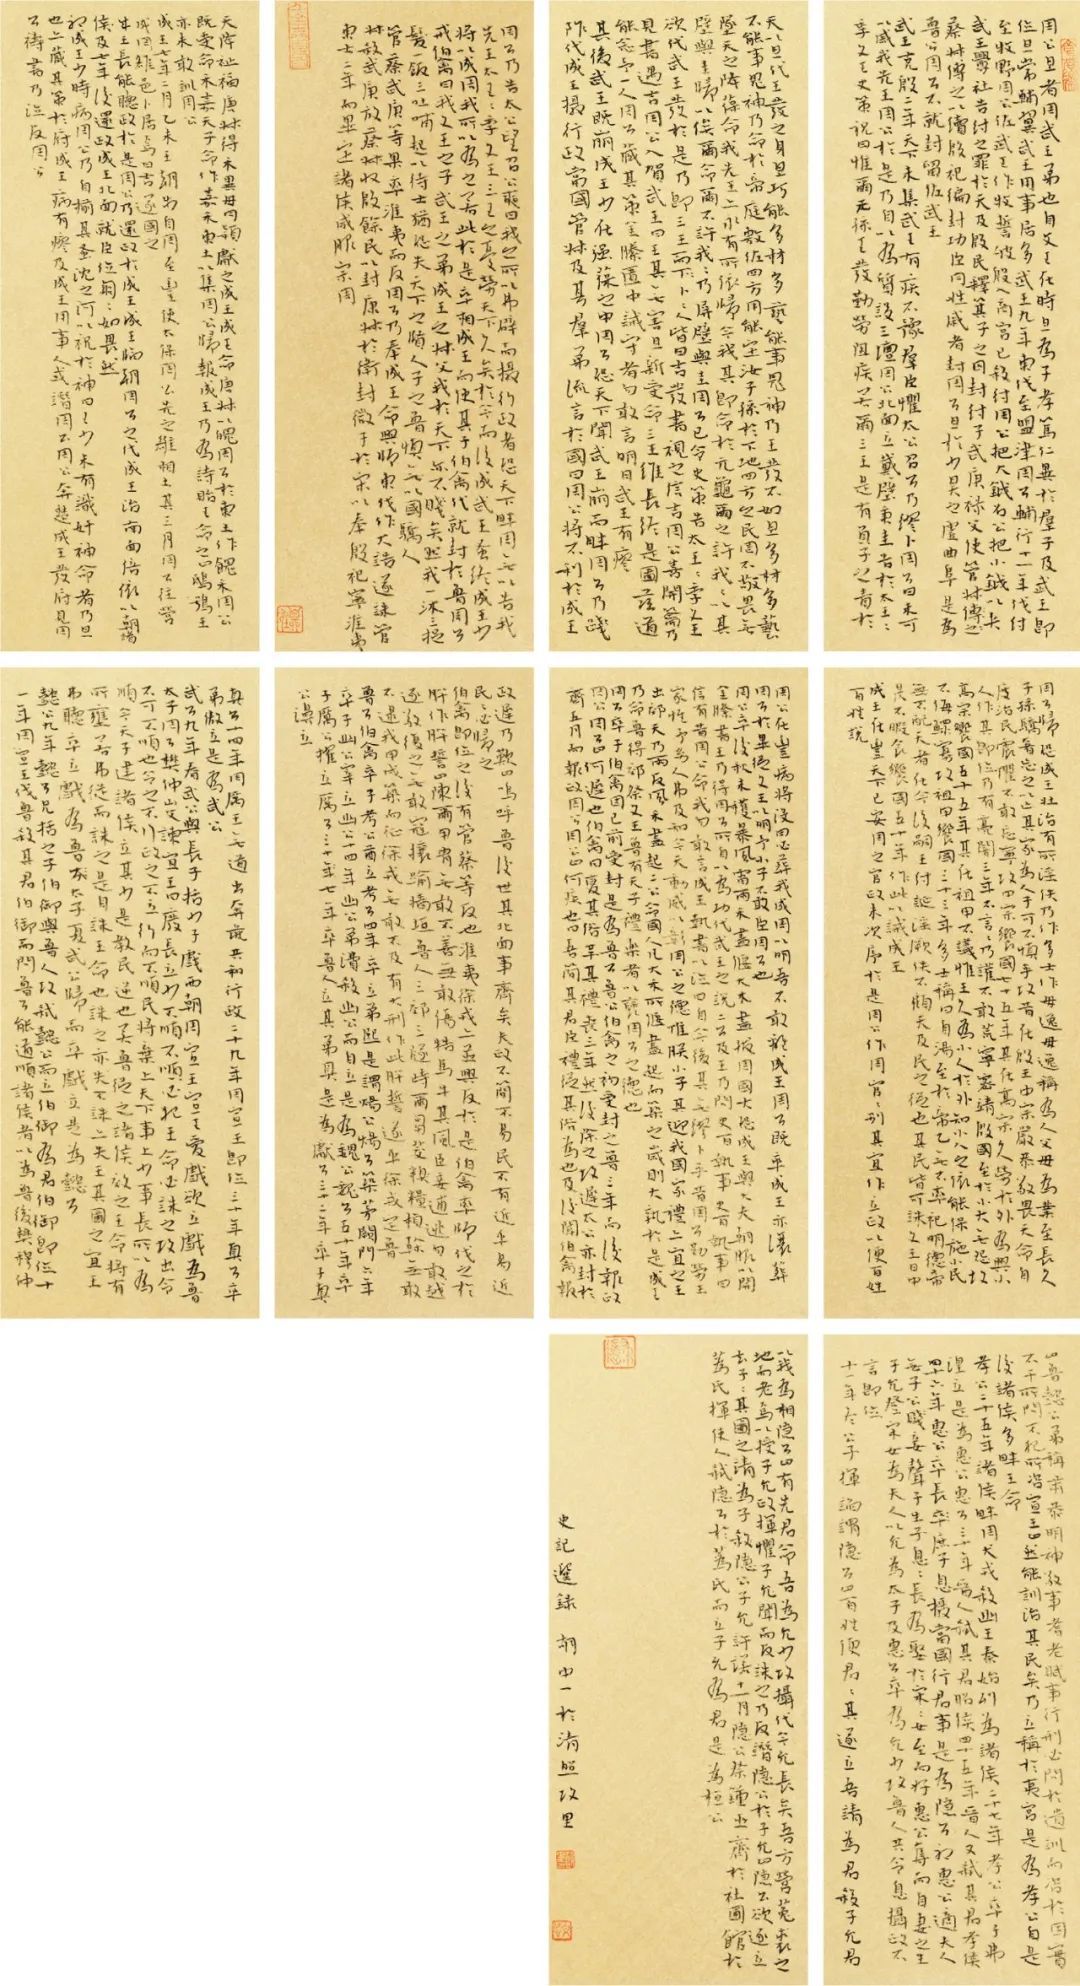 周公旦者周武王弟也自文王在時旦為子孝篤仁異於群子及武王即
位旦常輔翼武王用事居多武王九年東伐至盟津周公輔行十一年伐紂
至牧野周公佐武王作牧誓破殷入商宮已殺紂周公把大鉞召公把小鉞以夾
武王釁社告紂之罪於天及殷民釋箕子之囚封紂子武庚祿父使管叔傅之
蔡叔傅之以續殷祀徧封功臣同姓戚者封周公旦於少昊之虛曲阜是為
魯公周公不就封留佐武王
武王克殷二年天下未集武王有疾不豫群臣懼太公召公乃繆卜周公曰未可
以戚我先王周公於是乃自以為質設三壇周公北面立戴璧秉圭告於太王王
季文王史策祝曰惟爾元孫王發勤勞阻疾若爾三王是有負子之責於
天以旦代王發之身旦巧能多材多藝能事鬼神乃王發不如旦多材多藝
不能事鬼神乃命於帝庭敷佑四方用能定汝子孫於下地四方之民罔不敬畏無
墜天之降葆命我先王亦永有所依歸今我其即命於元龜爾之許我我以其
璧與圭歸以俟爾命爾不許我我乃屏璧與圭周公已令史策告太王王季文王
欲代武王發於是乃即三王而卜卜人皆曰吉發書視之信吉周公喜開籥乃
見書遇吉周公入賀武王曰王其無害旦新受命三王維長終是圖茲道
能念予一人周公藏其策金縢匱中誡守者勿敢言明日武王有瘳
其後武王既崩成王少在強葆之中周公恐天下聞武王崩而畔周公乃踐
阼代成王攝行政當國管叔及其群弟流言於國曰周公將不利於成王
周公乃告太公望召公奭曰我之所以弗辟而攝行政者恐天下畔周無以告我
先王太王王季文王三王之憂勞天下久矣於今而後成武王蚤終成王少
將以成周我所以為之若此於是卒相成王而使其子伯禽代就封於魯周公
戒伯禽曰我文王之子武王之弟成王之叔父我於天下亦不賤矣然我一沐三捉
髮一飯三吐哺起以待士猶恐失天下之賢人子之魯慎無以國驕人
管蔡武庚等果率淮夷而反周公乃奉成王命興師東伐作大誥遂誅管
叔殺武庚放蔡叔收殷餘民以封康叔於衛封微子於宋以奉殷祀寧淮夷
東土二年而畢定諸侯咸服宗周
天降祉福唐叔得禾異母同穎獻之成王成王命唐叔以餽周公於東土作餽禾周公
既受命禾嘉天子命作嘉禾東土以集周公歸報成王乃為詩貽王命之曰鴟鴞王
亦未敢訓周公
成王七年二月乙未王朝步自周至豐使太保召公先之雒相土其三月周公往營
成周雒邑卜居焉曰吉遂國之
成王長能聽政於是周公乃還政於成王成王臨朝周公之代成王治南面倍依以朝諸
侯及七年後還政成王北面就臣位匔匔如畏然
初成王少時病周公乃自揃其蚤沈之河以祝於神曰王少未有識奸神命者乃旦
也亦藏其策於府成王病有瘳及成王用事人或譖周公周公奔楚成王發府見周
公禱書乃泣反周公
周公歸恐成王壯治有所淫佚乃作多士作毋逸毋逸稱為人父母為業至長久
子孫驕奢忘之以亡其家為人子可不慎乎故昔在殷王中宗嚴恭敬畏天命自
度治民震懼不敢荒寧故中宗饗國七十五年其在高宗久勞於外為與小
人作其即位乃有亮闇三年不言言乃讙不敢荒寧密靖殷國至於小大無怨故
高宗饗國五十五年其在祖甲不義惟王久為小人於外知小人之依能保施小民
不侮鰥寡故祖甲饗國三十三年多士稱曰自湯至於帝乙無不率祀明德帝
無不配天者在今後嗣王紂誕淫厥佚不顧天及民之從也其民皆可誅文王日中
昃不暇食饗國五十年作此以誡成王
成王在豐天下已安周之官政未次序於是周公作周官官別其宜作立政以便百姓
百姓說
周公在豐病將沒曰必葬我成周以明吾不敢離成王周公既卒成王亦讓葬
周公於畢從文王以明予小子不敢臣周公也
周公卒後秋未穫暴風雷雨禾盡偃大木盡拔周國大恐成王與大夫朝服以開
金縢書王乃得周公所自以為功代武王之說二公及王乃問史百執事史百執事曰
信有昔周公命我勿敢言成王執書以泣曰自今後其無繆卜乎昔周公勤勞王
家惟予幼人弗及知今天動威以彰周公之德惟朕小子其迎我國家禮亦宜之王
出郊天乃雨反風禾盡起二公命國人凡大木所偃盡起而築之歲則大孰於是成王
乃命魯得郊祭文王魯有天子禮樂者以褒周公之德也
周公卒子伯禽固已前受封是為魯公魯公伯禽之初受封之魯三年而後報政
周公周公曰何遲也伯禽曰變其俗革其禮喪三年然後除之故遲太公亦封於
齊五月而報政周公周公曰何疾也曰吾簡其君臣禮從其俗為也及後聞伯禽報
政遲乃歎曰嗚呼魯後世其北面事齊矣夫政不簡不易民不有近平易近
民民必歸之
伯禽即位之後有管蔡等反也淮夷徐戎亦並興反於是伯禽率師伐之於
肸作肸誓曰陳爾甲胄無敢不善無敢傷牿馬牛其風臣妾逋逃勿敢越
逐敬復之無敢寇攘踰墻垣魯人三郊三隧峙爾芻茭糗糧楨榦無敢
不逮我甲戌築而征徐戎無敢不及有大刑作此肸誓遂平徐戎定魯
魯公伯禽卒子考公酋立考公四年卒立弟熙是謂煬公煬公築茅闕門六年
卒子幽公宰立幽公十四年幽公弟沸殺幽公而自立是為魏公魏公五十年卒
子厲公擢立厲公三十七年卒魯人立其弟具是為獻公三十二年卒子真
公濞立
真公十四年周厲王無道出奔彘共和行政二十九年周宣王即位三十年真公卒
弟敖立是為武公
武公九年春武公與長子括少子戲西朝周宣王宣王愛戲欲立戲為魯
太子周之樊仲山父諫宣王曰廢長立少不順不順必犯王命犯王命必誅之故出令
不可不順也令之不行政之不立行而不順民將棄上夫下事上少事長所以為
順今天子建諸侯立其少是教民逆也若魯從之諸侯效之王命將有
所壅若弗從而誅之是自誅王命也誅之亦失不誅亦失王其圖之宣王
弗聽卒立戲為魯太子夏武公歸而卒戲立是為懿公
懿公九年懿公兄括之子伯御與魯人攻弒懿公而立伯御為君伯御即位十
一年周宣王伐魯殺其君伯御而問魯公子能道順諸侯者以為魯後樊穆仲
曰魯懿公弟稱肅恭明神敬事耆老賦事行刑必問於遺訓而咨於固實
不干所問不犯所咨宣王曰然能訓治其民矣乃立稱於夷宮是為孝公自是
後諸侯多畔王命
孝公二十五年諸侯畔周犬戎殺幽王秦始列為諸侯二十七年孝公卒子弗
湟立是為惠公惠公三十年晉人弒其君昭侯四十五年晉人又弒其君孝侯
四十六年惠公卒長庶子息攝當國行君事是為隱公初惠公適夫人
無子公賤妾聲子生子息息長為娶於宋宋女至而好惠公奪而自妻之生
子允登宋女為夫人以允為太子及惠公卒為允少故魯人共令息攝政不
言即位
十一年冬公子揮諂謂隱公曰百姓便君君其遂立吾請為君殺子允君
以我為相隱公曰有先君命吾為允少故攝代今允長矣吾方營菟裘之
地而老焉以授子允政揮懼子允聞而反誅之乃反譖隱公於子允曰隱公欲遂立
去子子其圖之請為子殺隱公子允許諾十一月隱公祭鍾巫齊於社圃館於
蒍氏揮使人弒隱公於蒍氏而立子允為君是為桓公
史記選錄 胡由一於清照故里